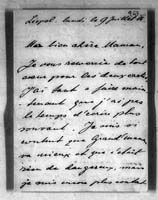 Léopol. lundi le 9 Juillet
Ma bien chère Maman,
Je vous remercie de tout
cœur pour les deux
J'ai tant à faire main
tenant que j'ai pas
le temps d'écrire plus
souvent. Je suis si
contente que Grand'
va mieux et que
rien de dangereux, mais
je suis encore plus